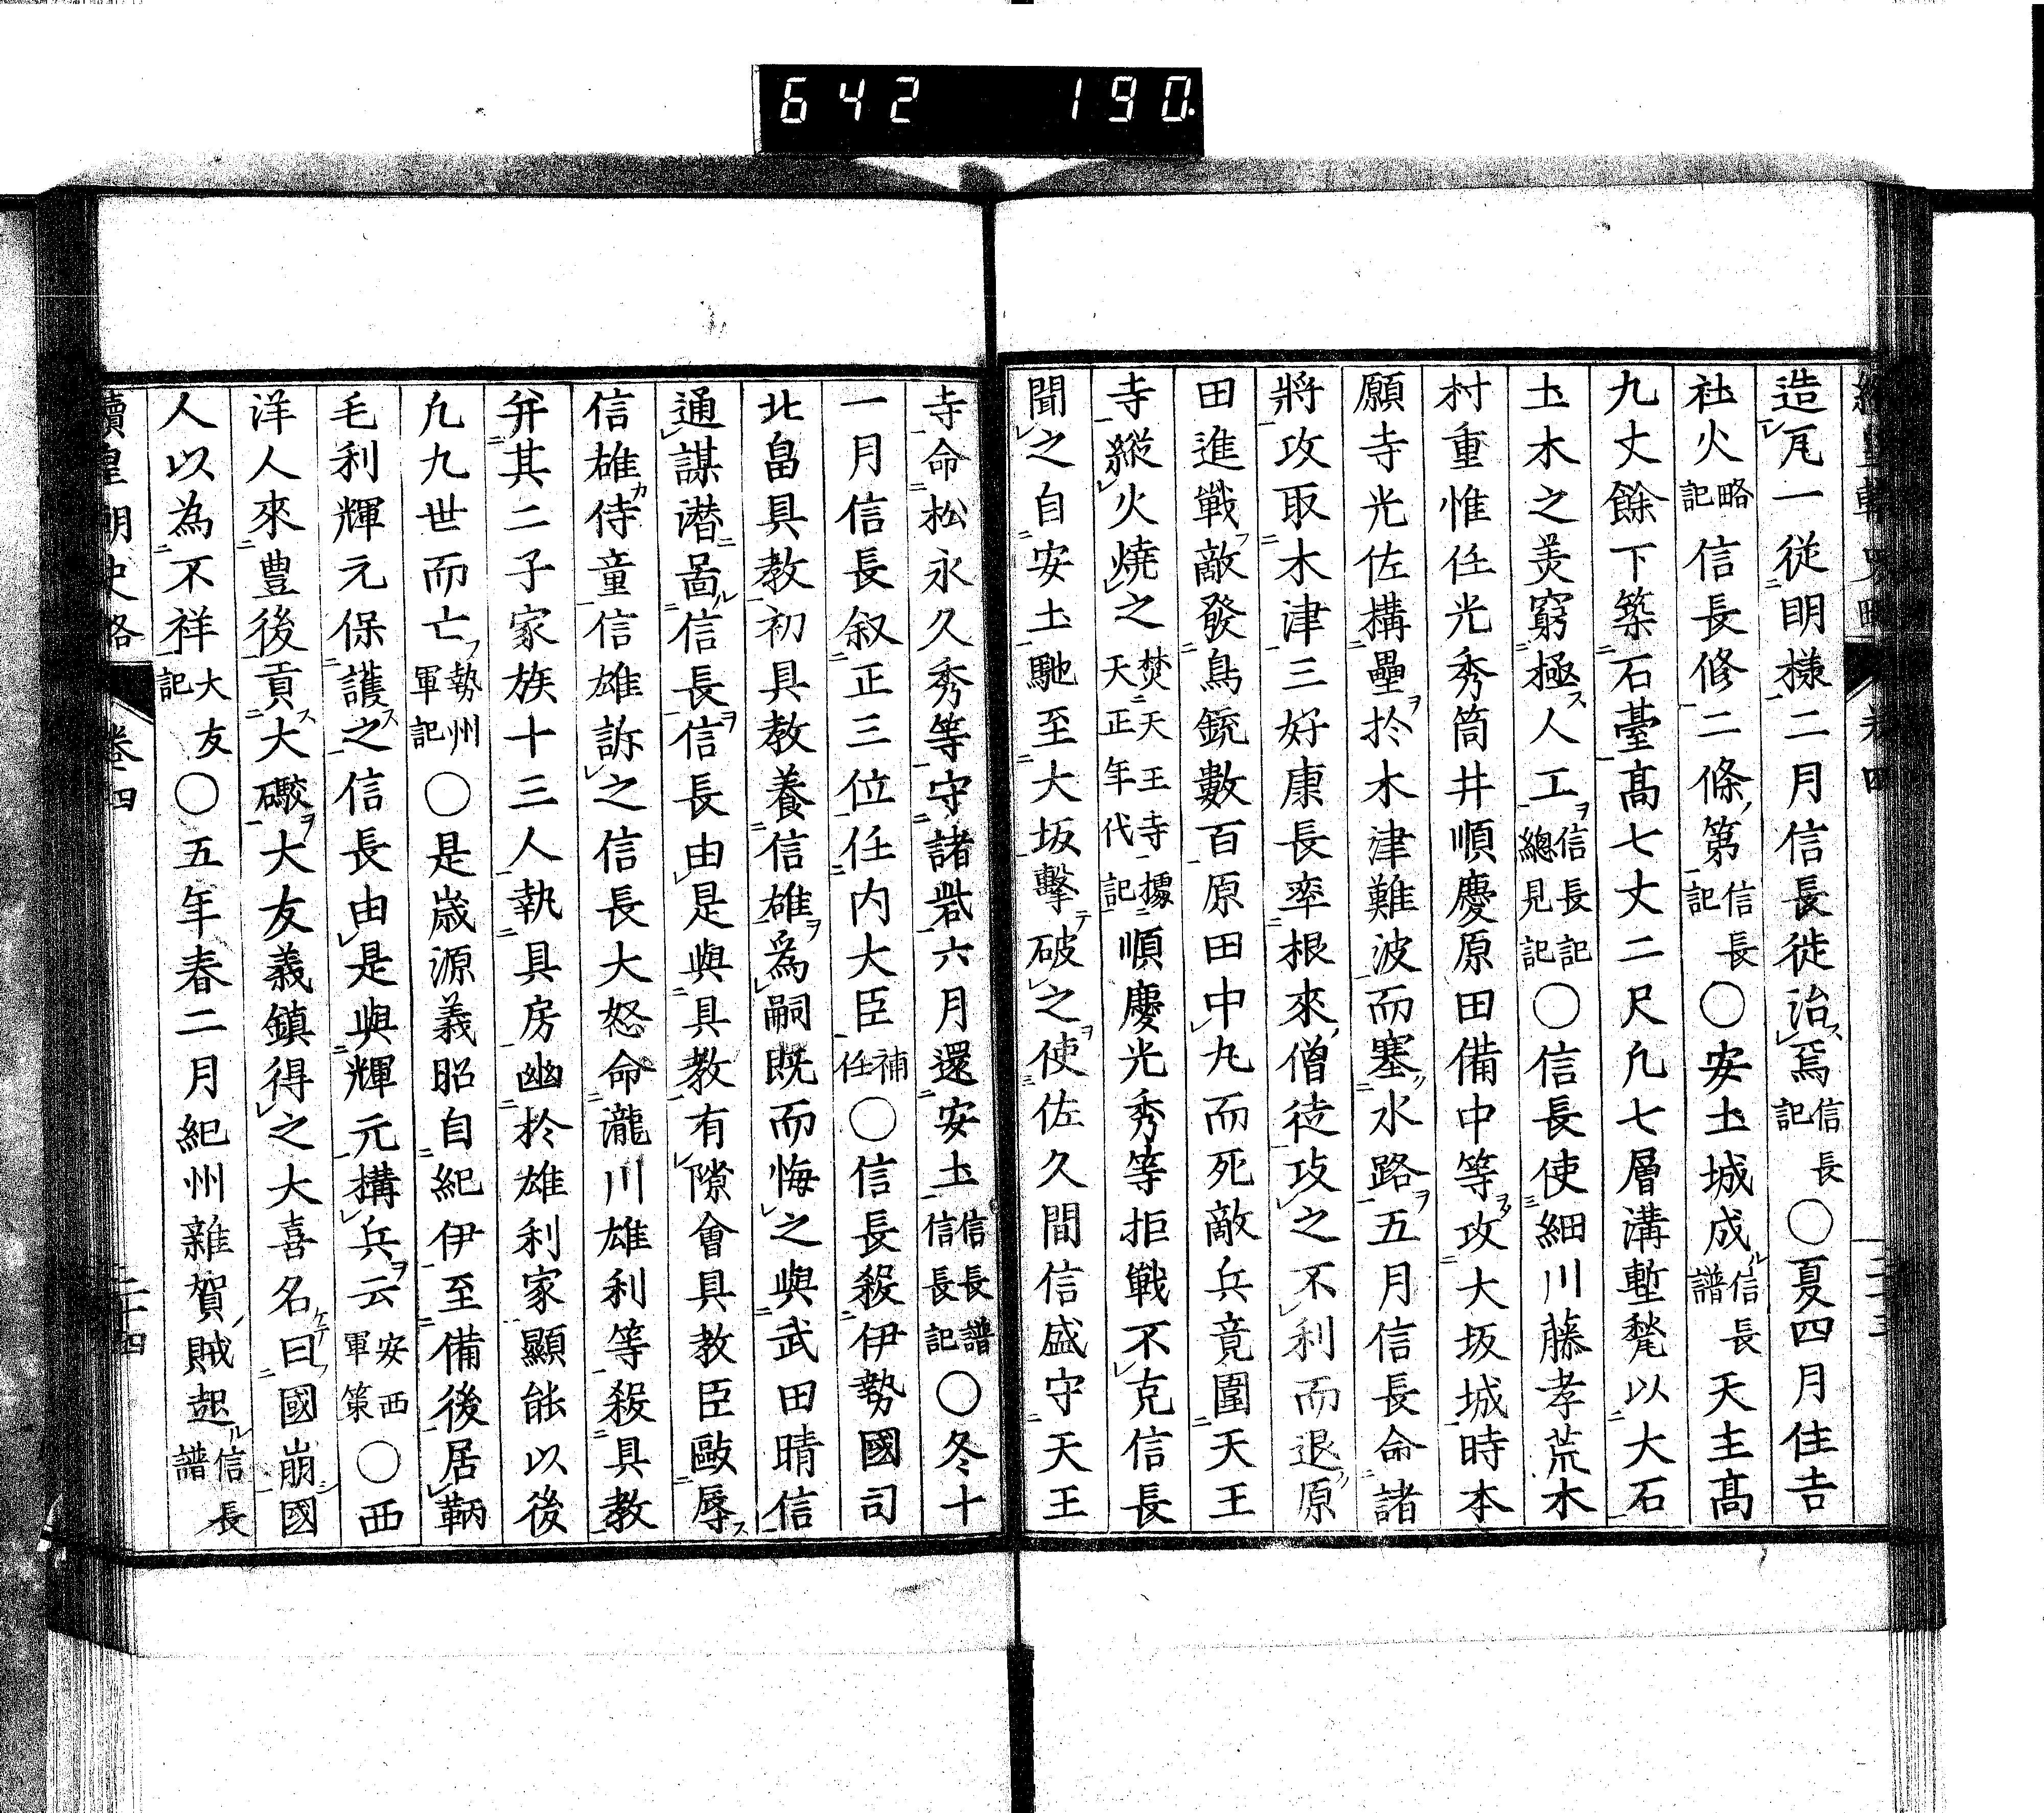 642 190
造瓦一從明樣二月信長徙治焉信長記○夏四月住吉
社火略記信長修二條第信長記○安土城成信長譜天主高
九丈餘下築石臺高七丈二尺凡七層溝塹甃以大石
土木之美窮極人工信長記總見記○信長使細川藤孝荒木
村重惟任光秀筒井順慶原田備中等攻大坂城時本
願寺光佐構壘於木津難波而塞水路五月信長命諸
將攻取木津三好康長率根來僧徒攻之不利而退原
田進戰敵發鳥銃數百原田中丸而死敵兵竟圍天王
寺縱火燒之焚天王寺據天正年代記順慶光秀等拒戰不克信長
聞之自安土馳至大坂擊破之使佐久間信盛守天王
寺命松永久秀等守諸砦六月還安土信長譜信長記○冬十
一月信長叙正三位任内大臣補任○信長殺伊勢國司
北畠具教初具教養信雄爲嗣既而悔之與武田晴信
通謀潜啚信長信長由是與具教有隙會具教臣毆辱
信雄侍童信雄訴之信長大怒命瀧川雄利等殺具教
并其二子家族十三人執具房幽於雄利家顯能以後
凡九世而亡勢州軍記○是歳源義昭自紀伊至備後居鞆
毛利輝元保護之信長由是與輝元構兵云安西軍策○西
洋人來豊後貢大礮大友義鎮得之大喜名曰國崩國
人以為不祥大友記○五年春二月紀州雜賀賊起信長譜
續皇朝史略 卷四 二十四